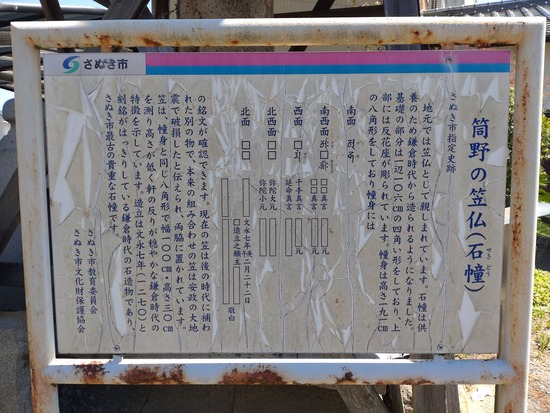 さぬき市
さぬき市指定史跡
筒野の笠仏(石幢)
せきどう
地元では笠仏として親しまれています。石幢は供
養のため鎌倉時代から造られるようになりました。
基礎の部分は一辺一〇六㎝の四角い形をしており、上
部には反花座が彫られています。幢身は高さ一九一㎝
の八角形をしており幢身には
南面
南西面
□□真言
□□真言
西面
千手真言
延命真言
北西面 □□
弥陀大元
弥陀小元
北面 □□
文永七年 二月二十二日
□造立之願主
敬白
の銘文が確認できます。現在の笠は後の時代に補わ
れた別の物で、本来の組み合わせの笠は安政の大地
震で破損したと伝えられ、両脇に置かれています。
笠は、幢身と同じ八角形で幅一〇〇㎝高さ三〇㎝
を測り高さが低く軒の反りが穏やかな鎌倉時代の
特徴を示しています。造立は文永七年(一二七〇)と
刻銘がはっきりしている鎌倉時代の石造物であり、
さぬき市最古の貴重な石幢です。
さぬき市教育委員会
さぬき市文化財保護協会